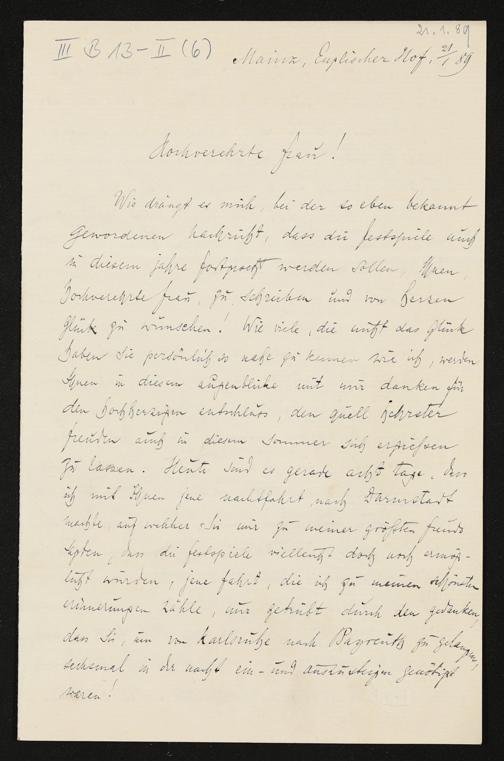 21. 1. 89
III B 13-II (6)
Mainz, Englischer Hof, 21/1 89
Hochverehrte Frau!
Wie drängt es mich, bei der so eben bekannt
gewordenen Nachricht, dass die Festspiele auch
in diesem Jahre fortgesetzt werden sollen, Ihnen,
Hochverehrte Frau, zu schreiben und von Herzen
Glück zu wünschen! Wie viele, die nicht das Glück
haben Sie persönlich so nahe zu kennen wie ich, werden
Ihnen in diesem Augenblicke mit mir danken für
den hochherzigen Entschluss, den Quell hehrster
Freuden auch in diesem Sommer sich ergiessen
zu lassen. Heute sind es gerade acht Tage, dass
ich mit Ihnen jene Nachtfahrt nach Darmstadt
machte, auf welcher Sie mir zu meiner größten Freude
sagten, dass die Festspiele vielleicht doch noch ermög-
licht würden, jene Fahrt, die ich zu meinen schönsten
Erinnerungen zähle, nur getrübt durch den Gedanken,
dass Sie, um von Karlsruhe nach Bayreuth zu gelangen,
sechsmal in der Nacht ein- und auszusteigen genötigt
waren!